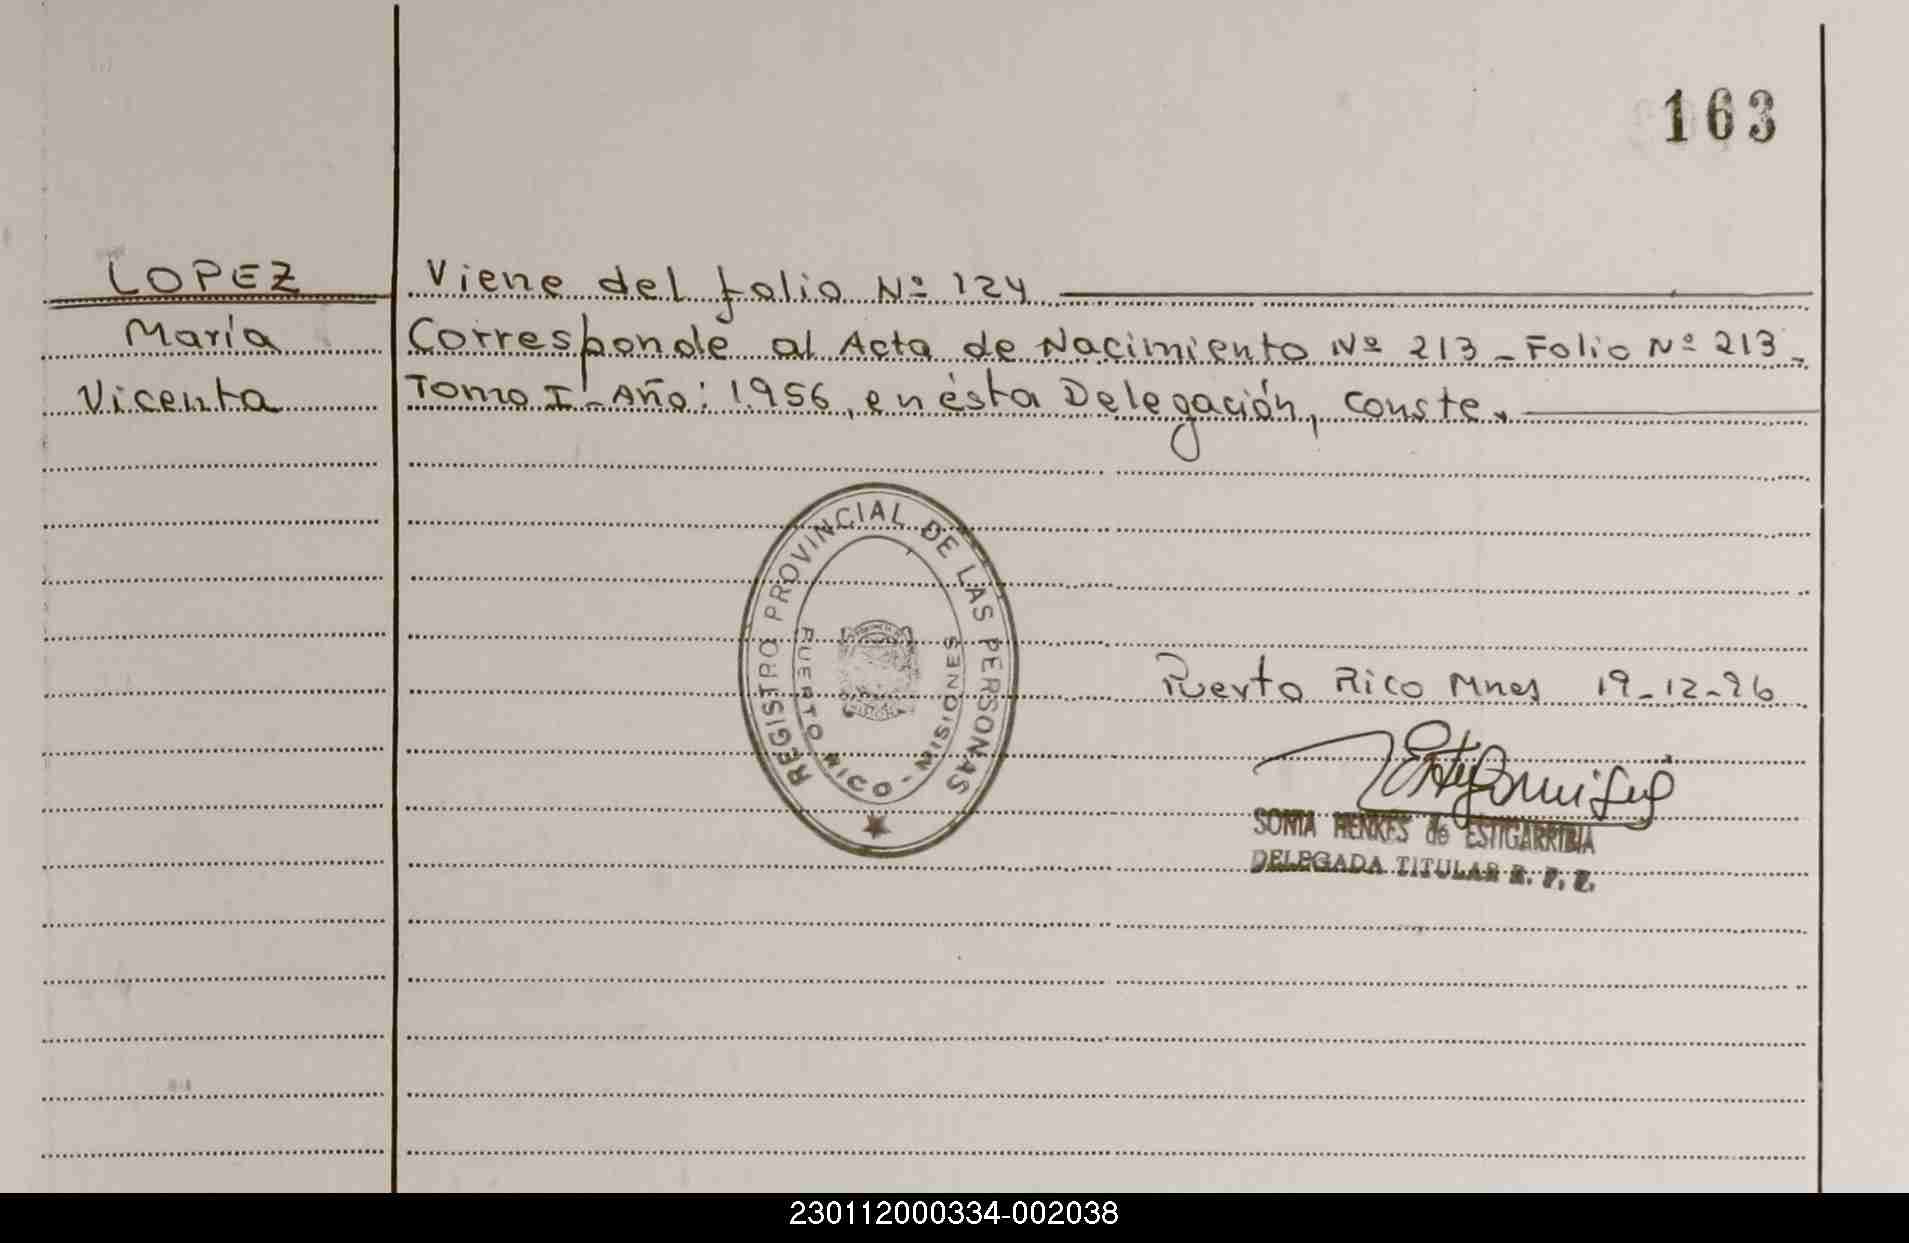 163
LOPEZ
María
Vicenta
Viene del folio Nº 124
Corresponde al Acta de Nacimiento Nº 213 - Folio Nº 213 -
Tomo I - Año: 1.956, en ésta Delegación, conste.
REGISTRO PROVINCIAL DE LAS PERSONAS
PUERTO RICO - MISIONES
Puerto Rico Mnes 19-12-96
SONIA HENKES de ESTIGARRIBIA
DELEGADA TITULAR R. P. P.
230112000334-002038